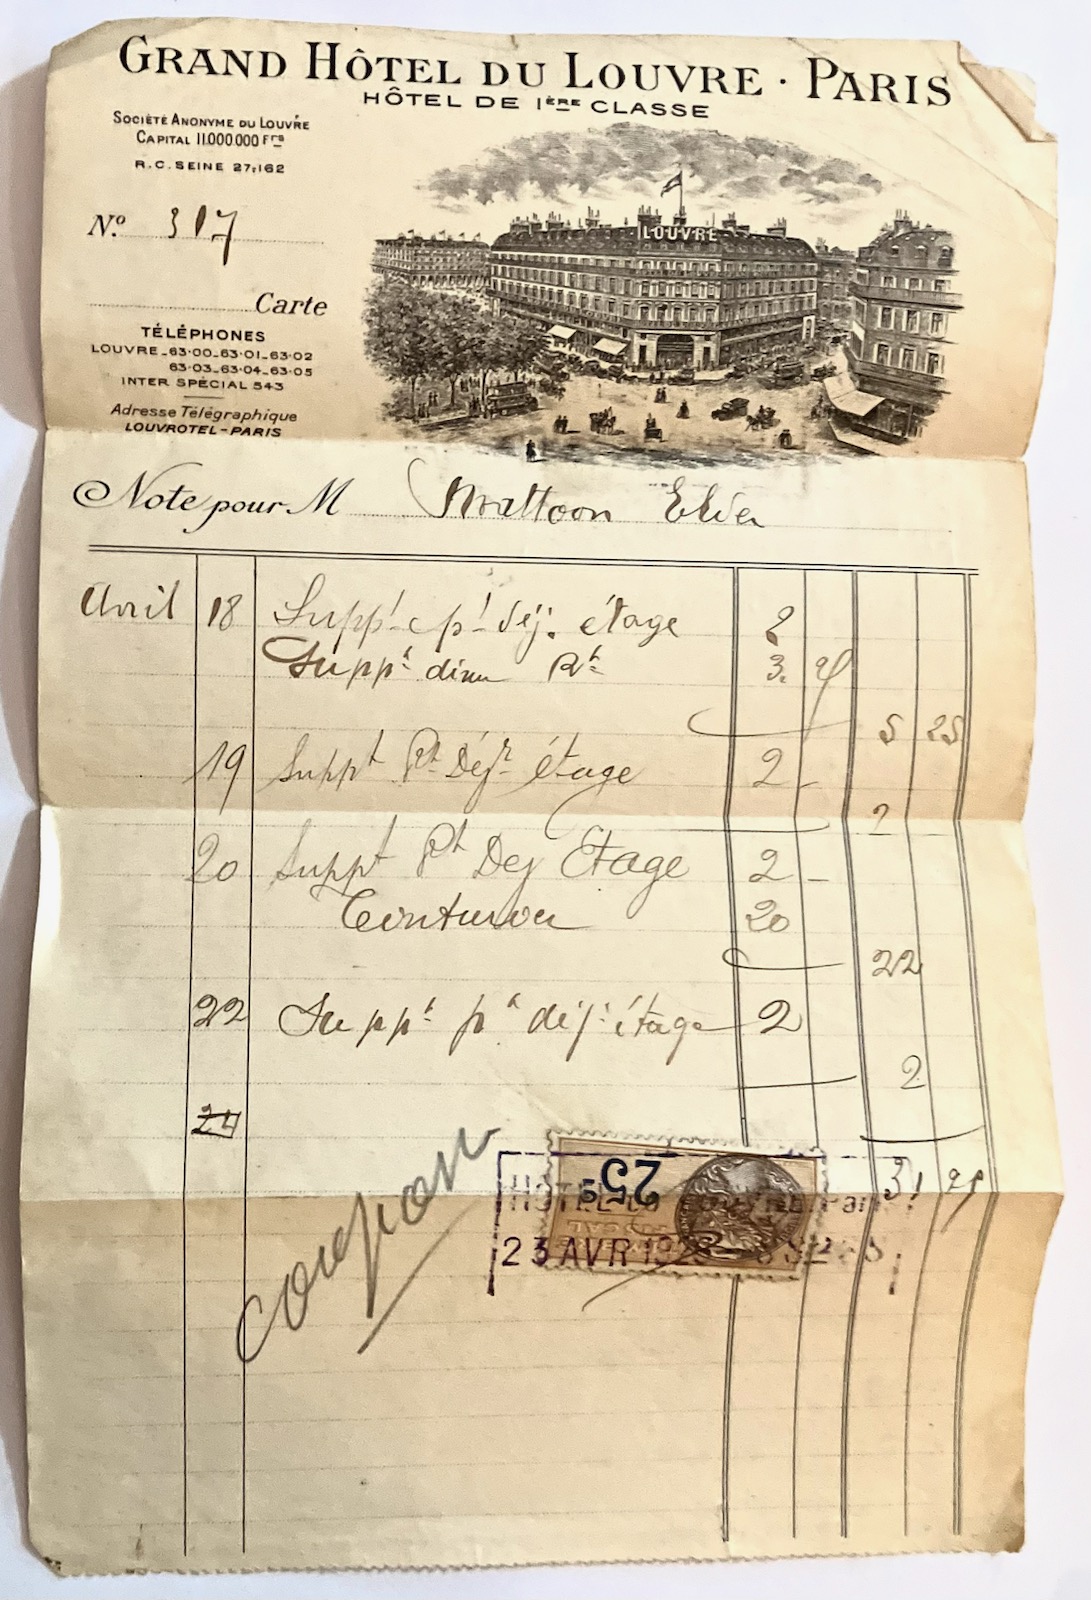 GRAND HÔTEL DU LOUVRE · PARIS
HÔTEL DE 1ÈRE CLASSE
SOCIÉTÉ ANONYME DU LOUVRE
CAPITAL 11.000.000 FRS
R.C. SEINE 27.162
LOUVRE
No. 317
Carte
TÉLÉPHONES
LOUVRE_63·00_63·01_63·02
63·03_63·04_63·05
INTER SPÉCIAL 543
Adresse Télégraphique
LOUVROTEL-PARIS
Note pour M
Avril 18 Suppt pt déj. étage 2
Suppt diner Rt 3. 25
5 25
19 Suppt Pt Déjr étage 2 -
2
20 Suppt Pt Dej Etage 2 -
Teinturier 20
22
22 Suppt pt déj. étage 2
2
24
31 25
coupon
25c
FISCAL
HOTEL du Paris
23 AVR 192